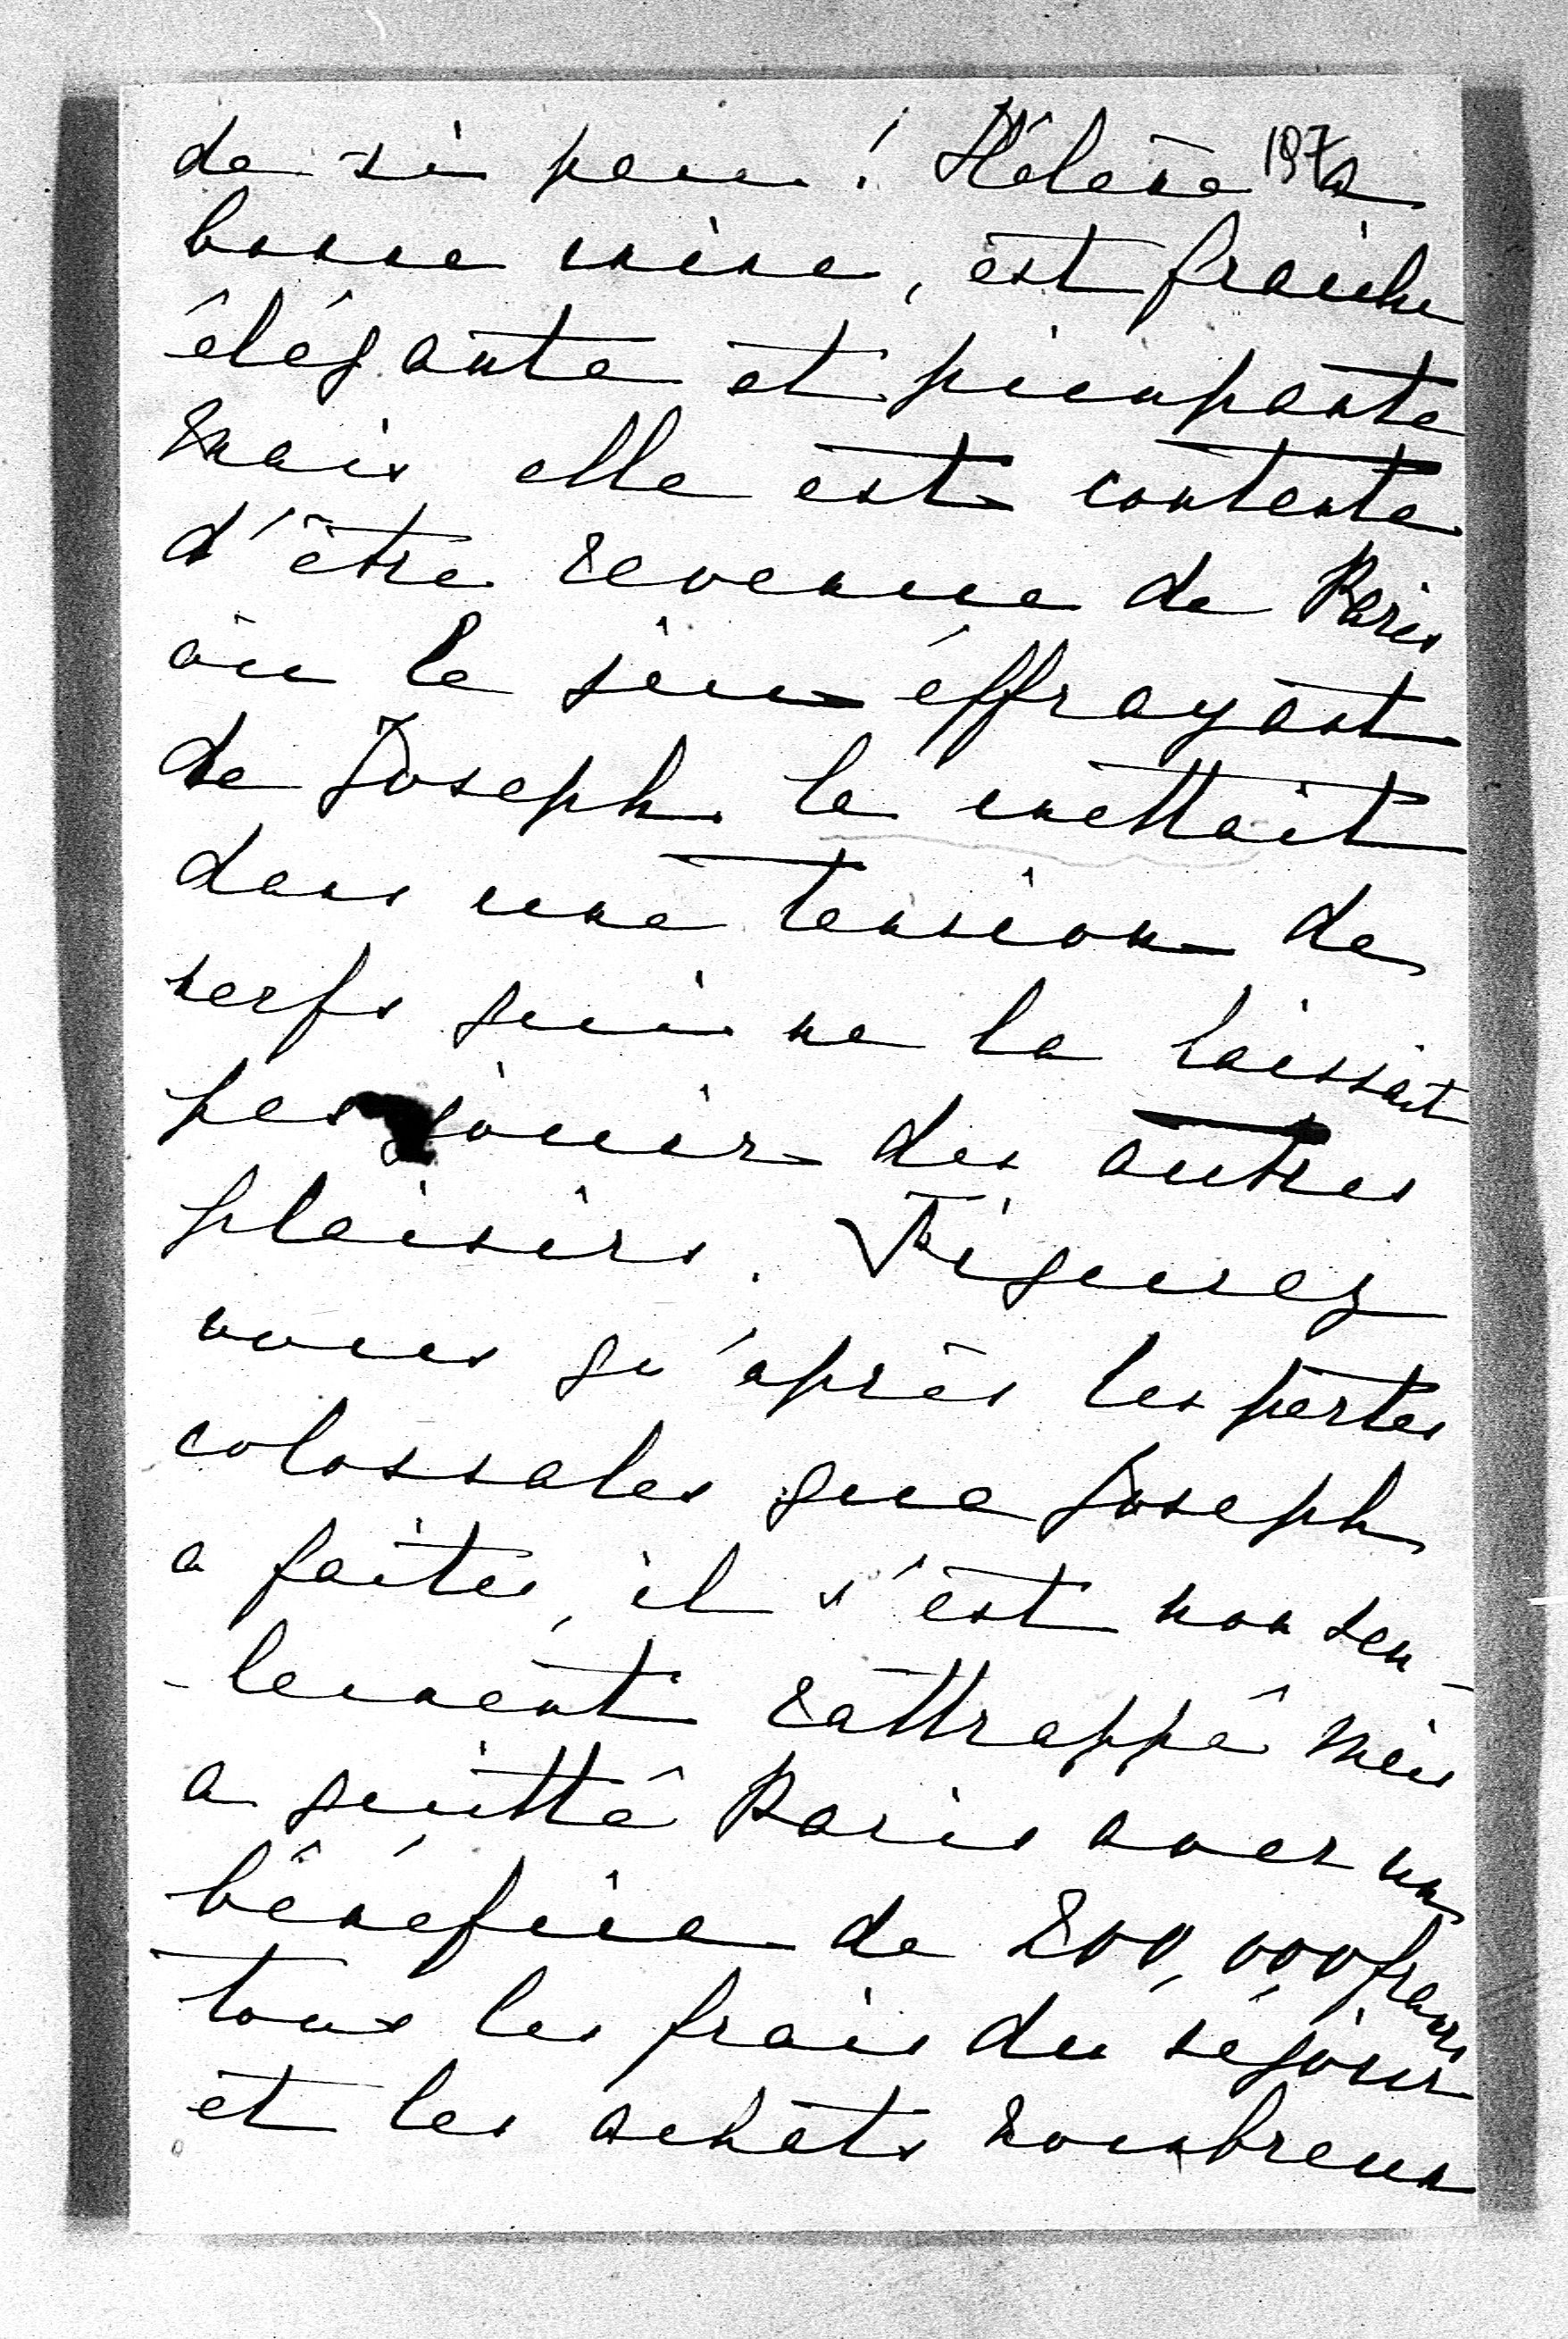 de si peu! Hélène 197 a
bonne mine, est fraiche
élégante et pimpante
mais elle est contente
d'être revenue de Paris
où le jeu éffrayant
de Joseph la mettait
dans une tension de
nerfs qui ne la laissait
pas jouir des autres
plaisirs. Figurez
vous qu'après les pertes
colossales que Joseph
a faites, il s'est non seu-
-lement rattrappé mais
a quitté Paris avec un
bénéfice de 200,000 francs
tous les frais du séjour
et les achats nombreux